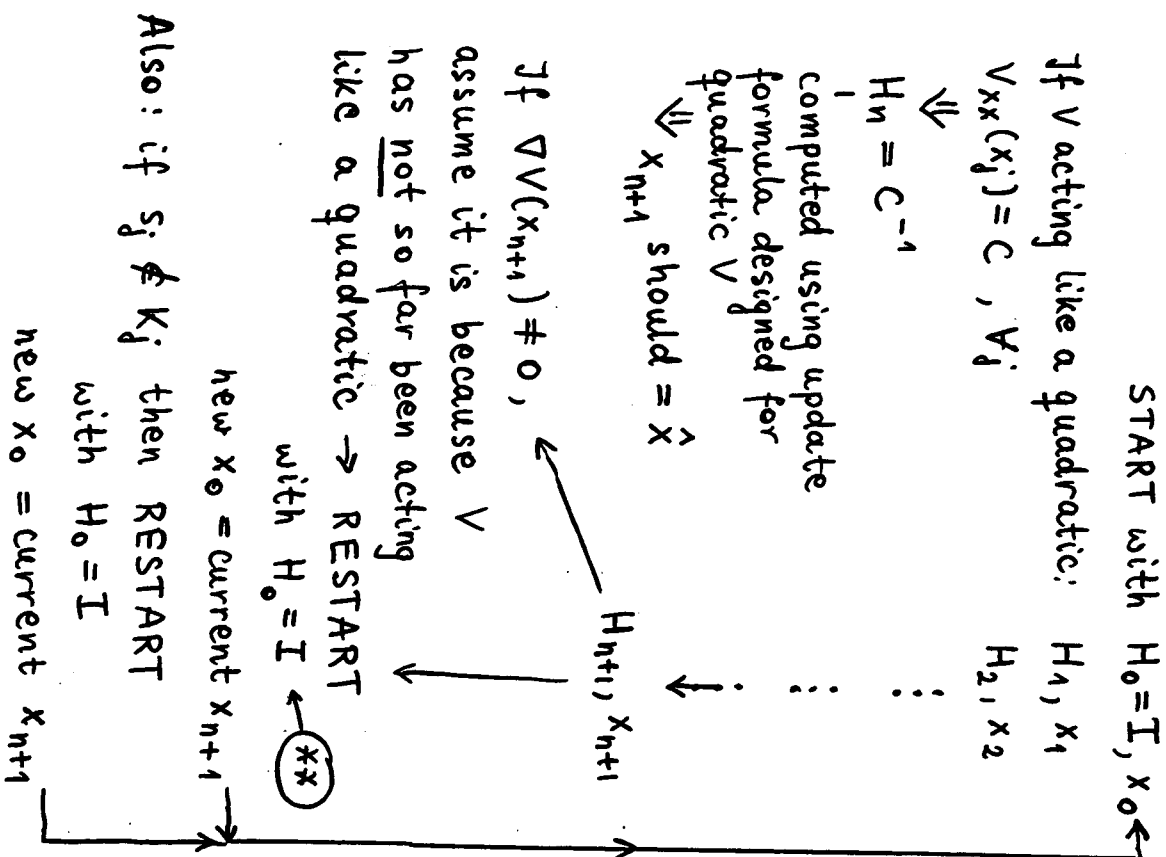 START with H₀ = I, x₀
If V acting like a quadratic: H₁, x₁
V_xx(x_j) = C , ∀j H₂, x₂
⇓ ...
H_n = C⁻¹ ...
computed using update
formula designed for
quadratic V
⇓ x_{n+1} should = x̂
H_{n+1}, x_{n+1}
If ∇V(x_{n+1}) ≠ 0,
assume it is because V
has not so far been acting
like a quadratic → RESTART
with H₀ = I **
new x₀ = current x_{n+1}
Also: if s_j ∉ K_j then RESTART
with H₀ = I
new x₀ = current x_{n+1}